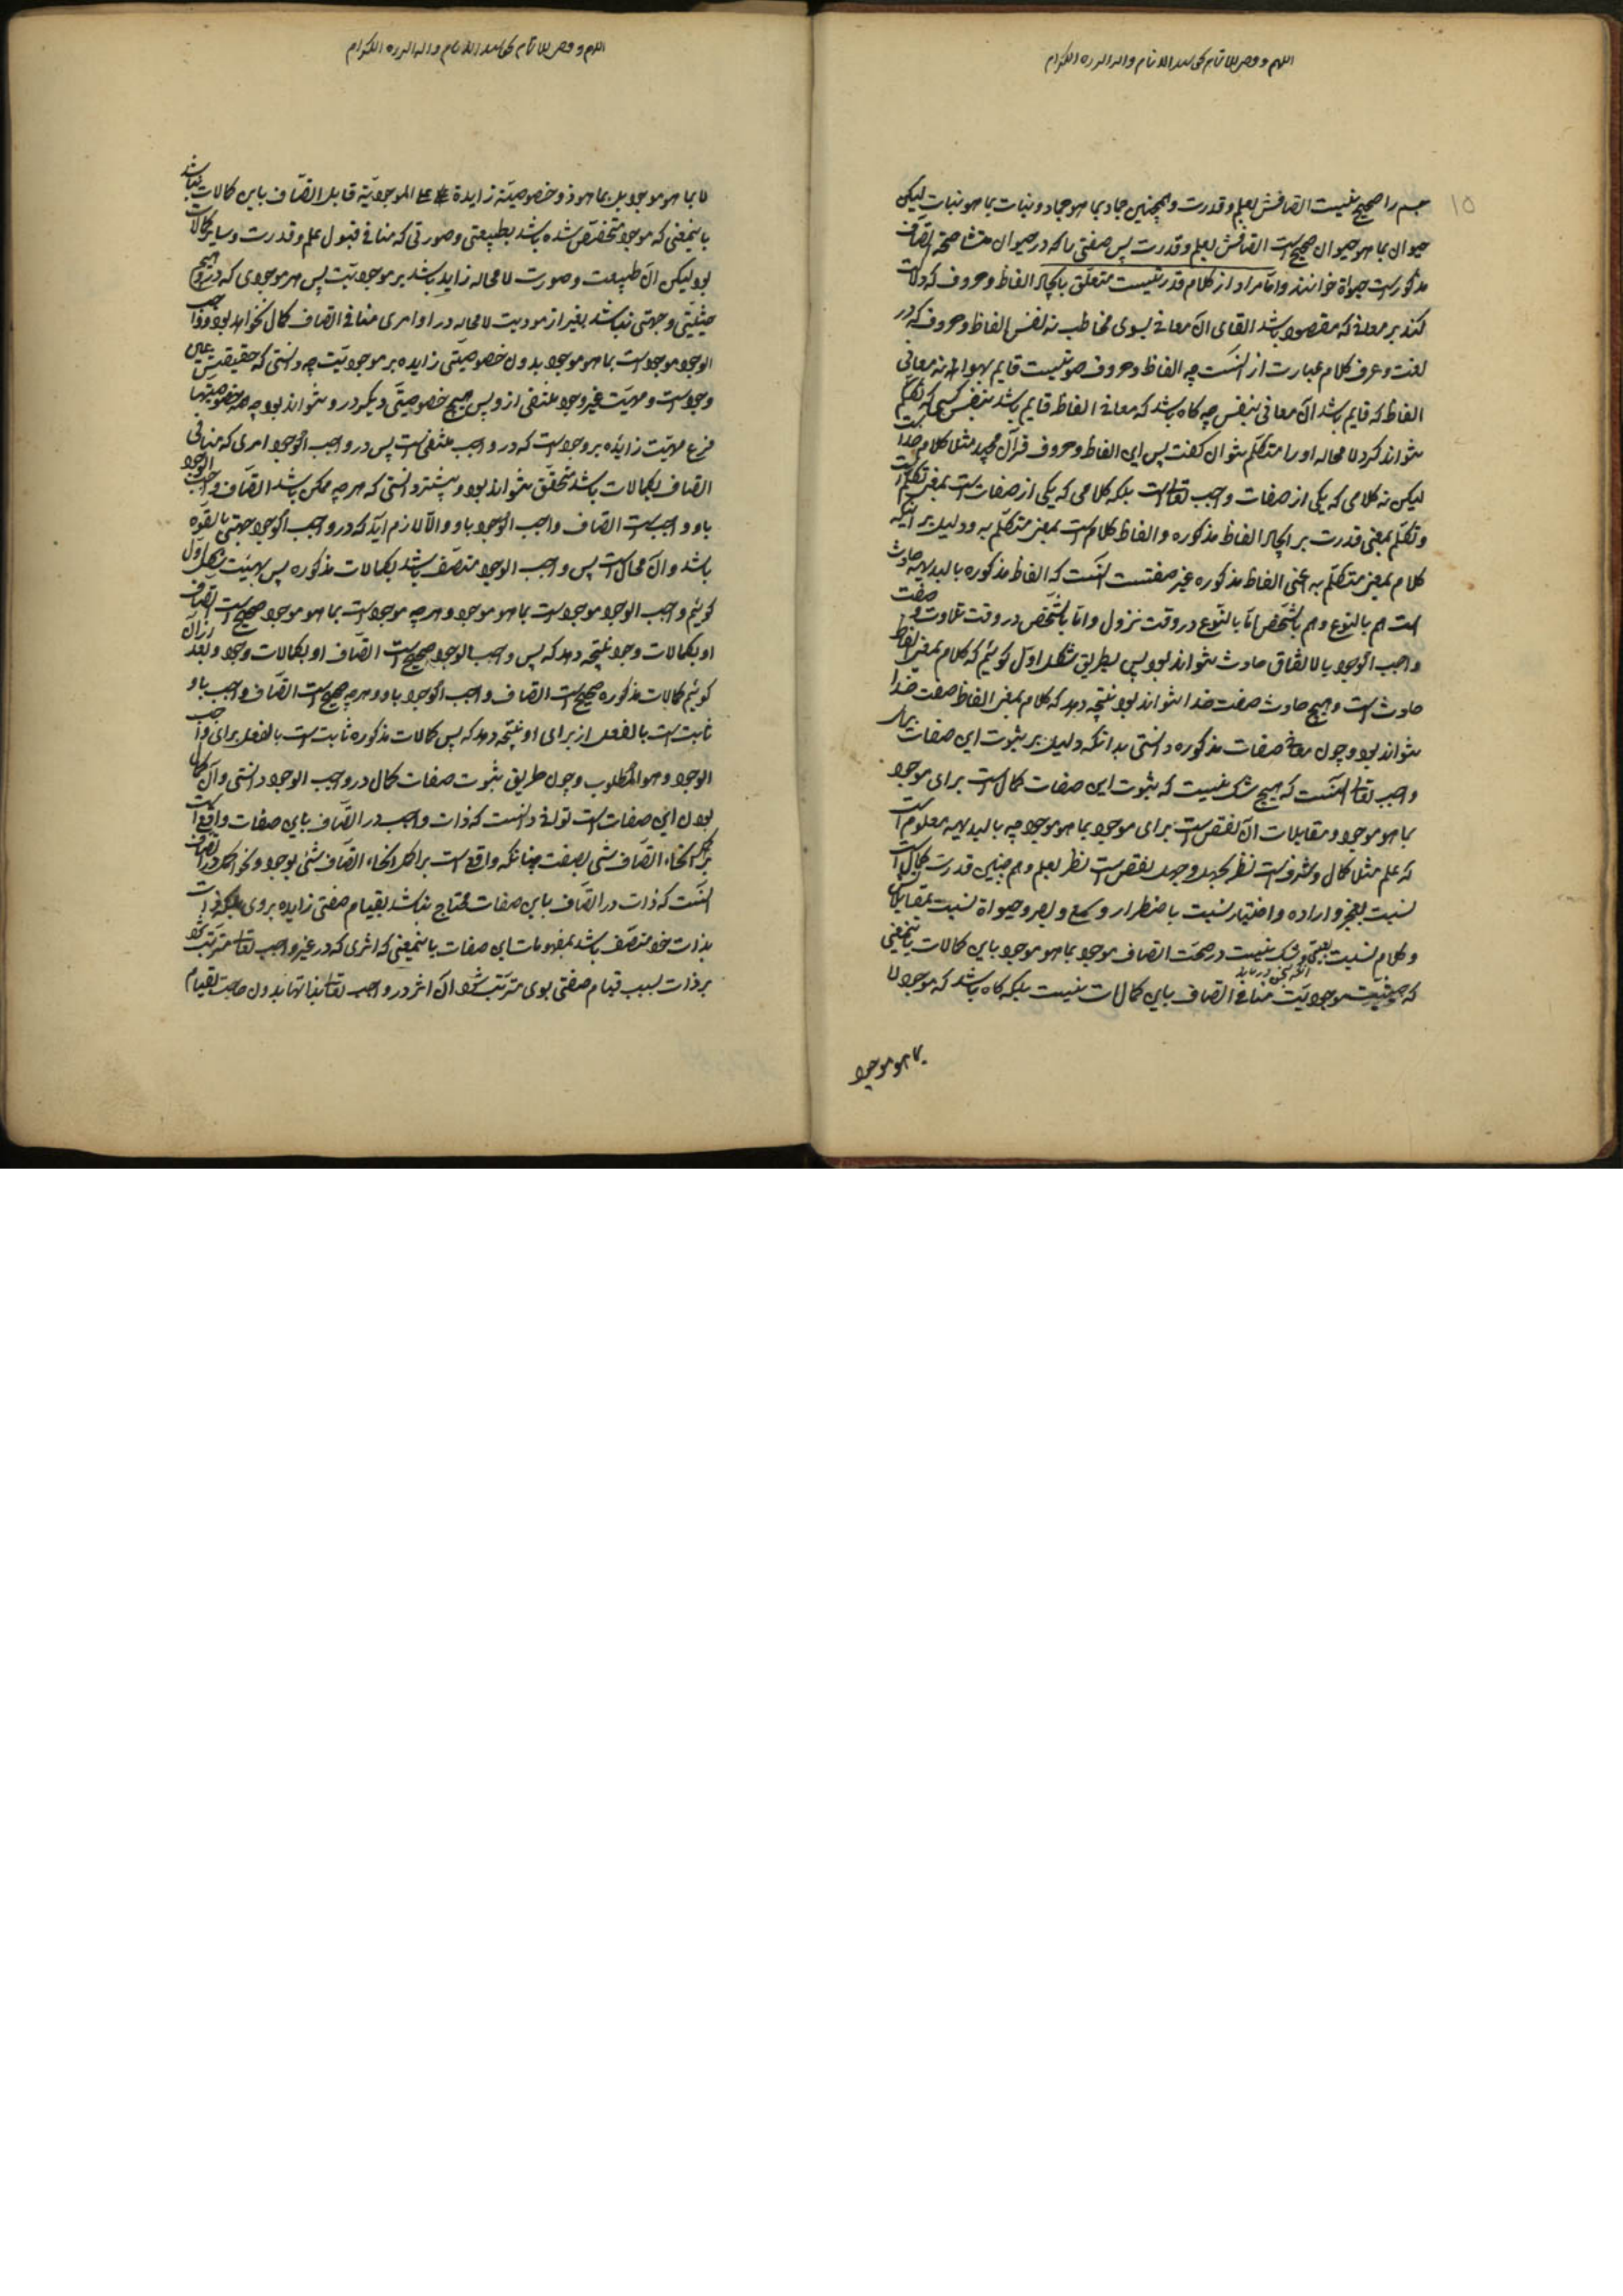 اللهم ووفق للاتمام بحق سید الانام واله البررة الکرام
۱۵
جسم را صحیح نیست اتصافش بعلم و قدرت و همچنین جماد بما هو جماد و نبات بما هو نبات لیکن
حیوان بما هو حیوان صحیح است اتصافش بعلم و قدرت پس صفتی را که در حیوان منشا صحة اتصاف
مذکور است حیواة خوانند و اما مراد از کلام قدرتیست متعلق بایجاد الفاظ و حروف که دلالت
کند بر معانی که مقصود باشد القای آن معانی بسوی مخاطب نه نفس الفاظ و حروف که در
لغت و عرف کلام عبارت از آنست چه الفاظ و حروف صوتیست قایم بهوا و نه معانی
الفاظ که قایم باشد آن معانی بنفس چه کاه باشد که معانی الفاظ قایم باشد بنفس کسی که تکلم
نتواند کرد لا محاله او را متکلم نتوان کفت پس این الفاظ و حروف قرآن مجید مثلا کلام خداست
لیکن نه کلامی که یکی از صفات واجب تعالی است بلکه کلامی که یکی از صفات است بمعنی تکلم است
و تکلم بمعنی قدرت بر ایجاد الفاظ مذکوره و الفاظ کلام است بمعنی متکلم به و دلیل بر اینکه
کلام بمعنی متکلم به اعنی الفاظ مذکوره غیر صفتست آنست که الفاظ مذکوره بالبدیهه حادث
است هم بالنوع و هم بالشخص اما بالنوع در وقت نزول و اما بالشخص در وقت تلاوت و صفت
واجب الوجود بالاتفاق حادث نتواند بود پس بطریق شکل اول کوئیم که کلام بمعنی الفاظ
حادث است و هیچ حادث صفت خدا نتواند بود نتیجه دهد که کلام بمعنی الفاظ صفت خدا
نتواند بود و چون معانی صفات مذکوره دانستی بدانکه دلیل بر ثبوت این صفات برای
واجب تعالی آنست که هیچ شک نیست که ثبوت این صفات کمال است برای موجود
بما هو موجود و مقابلات آن نقص است برای موجود بما هو موجود چه بالبدیهه معلوم است
که علم مثلا کمال و شرف است نظر بجهل و جهل نقص است نظر بعلم و هم چنین قدرت کمال است
نسبت بعجز و اراده و اختیار نسبت باضطرار و سمع و بصر و حیواة نسبت بمقابلاتش
و کلام نسبت و شک نیست در صحت اتصاف موجود بما هو موجود باین کمالات بایمعنی
که حیثیت موجودیت منافی اتصاف باین کمالات نیست بلکه کاه باشد که موجود لا
بما هو موجود
اللهم ووفق للاتمام بحق سید الانام واله البررة الکرام
لا بما هو موجود بل بما هو ذو خصوصیة زایدة علی الموجودیة قابل اتصاف باین کمالات نباشد
بایمعنی که موجود متخصص شده باشد بطبیعتی و صورتی که منافی قبول علم و قدرت و سایر کمالات
بود لیکن آن طبیعت و صورت لا محاله زاید باشد بر موجودیت پس هر موجودی که در او هیچ
حیثیتی و جهتی نباشد بغیر از موجودیت لا محاله در او امری منافی اتصاف کمال نخواهد بود و واجب
الوجود موجود است بما هو موجود بدون خصوصیتی زایده بر موجودیت چه دانستی که حقیقتش عین
وجود است و مهیت غیر وجود منتفی ازو پس هیچ خصوصیتی دیگر درو نتواند بود چه همه خصوصیتها
فرع مهیت زایده بر وجود است که در واجب منتفی است پس در واجب الوجود امری که منافی
اتصاف بکمالات باشد متحقق نتواند بود و پیشتر دانستی که هر چه ممکن باشد اتصاف واجب الوجود
باو واجب است اتصاف واجب الوجود باو و الا لازم آید که در واجب الوجود جهتی بالقوه
باشد و آن محال است پس واجب الوجود متصف باشد بکمالات مذکوره پس بهیئت شکل اول
کوئیم واجب الوجود موجود است بما هو موجود و هر چه موجود است بما هو موجود صحیح است اتصاف
او بکمالات وجود نتیجه دهد که پس واجب الوجود صحیح است اتصاف او بکمالات وجود و بعد از آن
کوئیم کمالات مذکوره صحیح است اتصاف واجب الوجود باو و هر چه صحیح است اتصاف واجب باو
ثابت است بالفعل از برای او نتیجه دهد که پس کمالات مذکوره ثابت است بالفعل برای واجب
الوجود و هو المطلوب و چون طریق ثبوت صفات کمال در واجب الوجود دانستی و آن کمال
بودن این صفات است توانی دانست که ذات واجب در اتصاف باین صفات واقع است
بر اکمل انحاء اتصاف شی بصفت چنانکه واقع است بر اکمل انحاء اتصاف شئی بوجود و نحو اکمل در اتصاف
آنست که ذات در اتصاف باین صفات محتاج نباشد بقیام صفتی زایده بروی بلکه ذات
بذات خود متصف باشد بمفهومات این صفات بایمعنی که اثری که در غیر واجب تعالی مترتب شود
بر ذات بسبب قیام صفتی بوی مترتب شود آن اثر در واجب تعالی بذاتها بدون حاجت بقیام